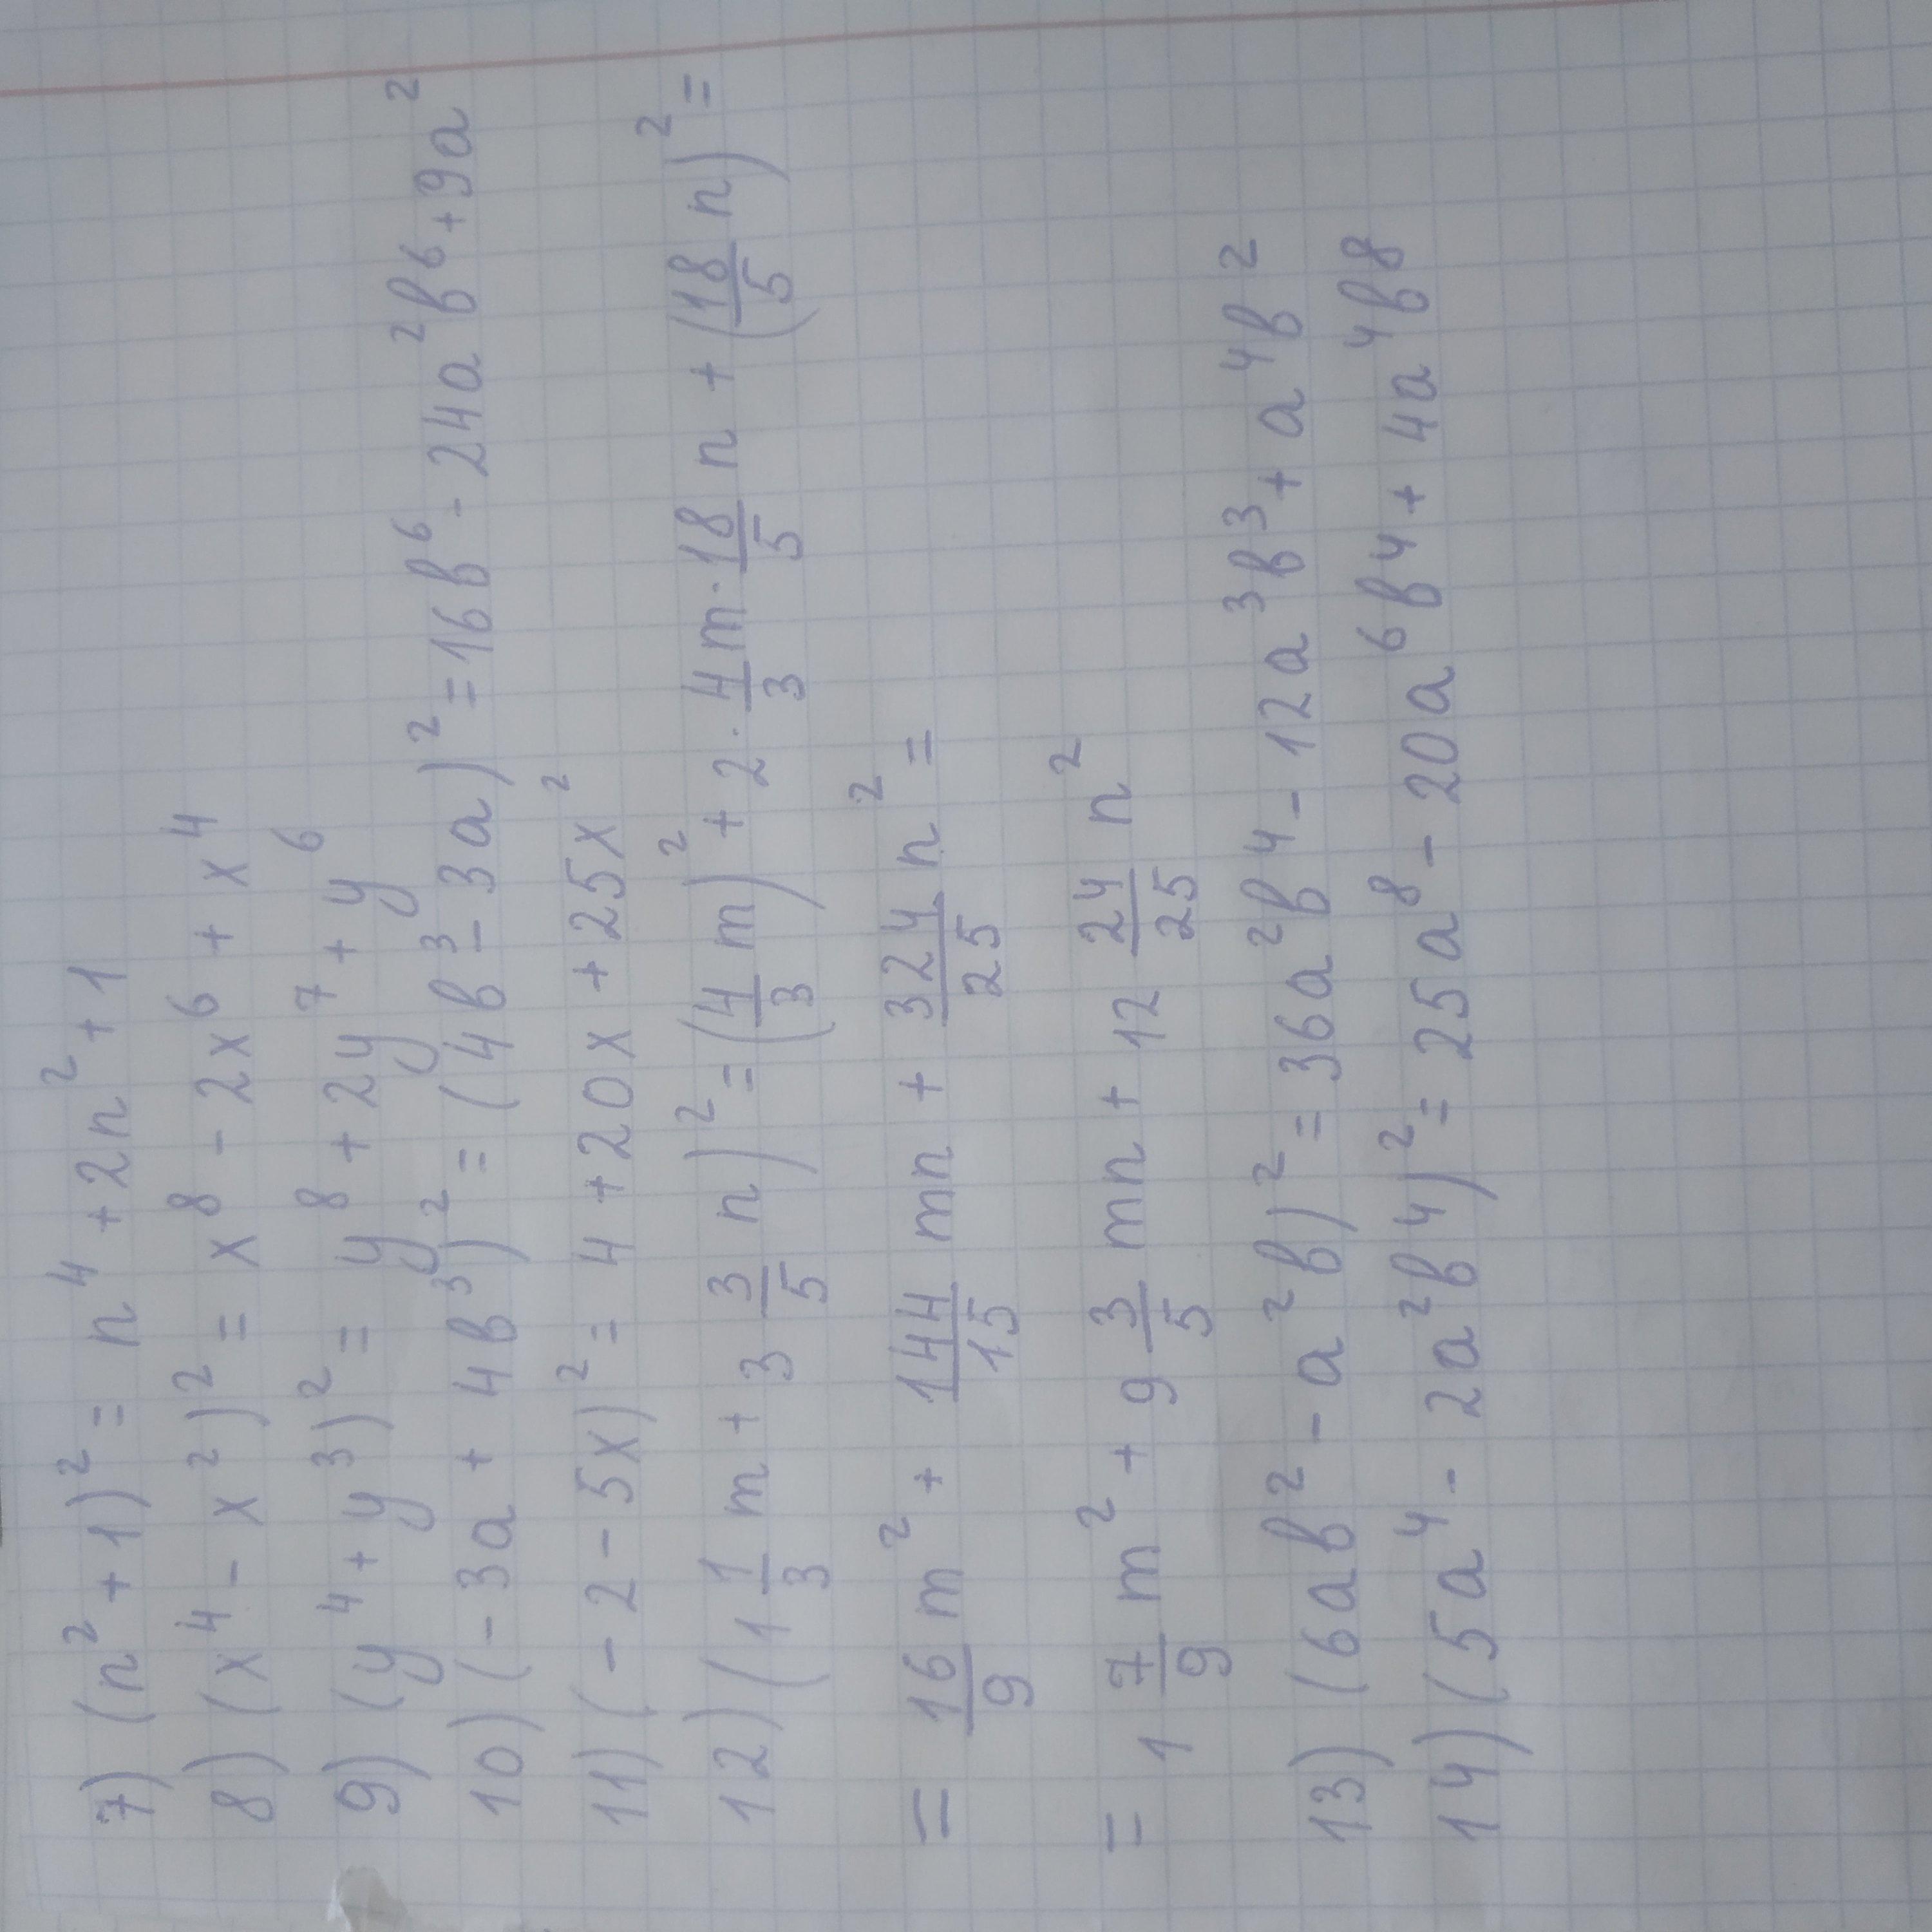 7) (n² + 1)² = n⁴ + 2n² + 1
8) (x⁴ - x²)² = x⁸ - 2x⁶ + x⁴
9) (y⁴ + y³)² = y⁸ + 2y⁷ + y⁶
10) (- 3a + 4в³)² = (4в³ - 3a)² = 16в⁶ - 24a²в⁶ + 9a²
11) (- 2 - 5x)² = 4 + 20x + 25x²
12) (1 1/3 m + 3 3/5 n)² = (4/3 m)² + 2 · 4/3 m · 18/5 n + (18/5 n)² =
= 16/9 m² + 144/15 mn + 324/25 n² =
= 1 7/9 m² + 9 3/5 mn + 12 24/25 n²
13) (6aв² - a²в)² = 36a²в⁴ - 12a³в³ + a⁴в²
14) (5a⁴ - 2a²в⁴)² = 25a⁸ - 20a⁶в⁴ + 4a⁴в⁸